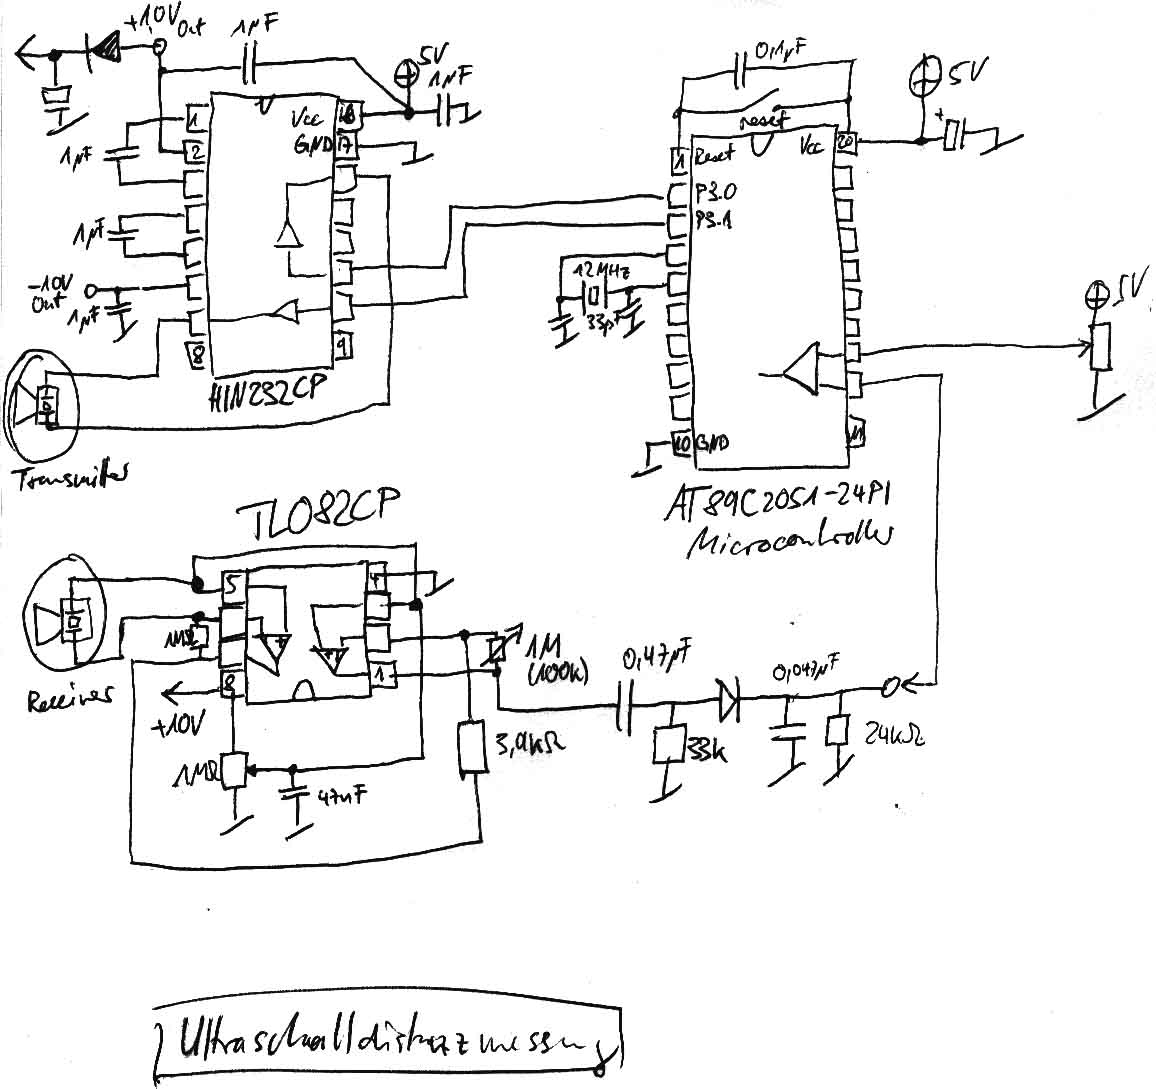 +10V Out
1µF
5V
1µF
1
2
8
Vcc 16
GND 17
9
1µF
1µF
-10V Out
1µF
HIN232CP
Transmitter
0,1µF
reset
5V
+
1 Reset
Vcc 20
P3.0
P3.1
12MHz
33pF
5V
10 GND
11
AT89C2051-24PI
Microcontroller
TL082CP
5
4
8
1
1MΩ
Receiver
+10V
1MΩ
47nF
1M
(100k)
3,9kΩ
0,47µF
33k
0,047µF
24kΩ
Ultraschalldistanzmessung